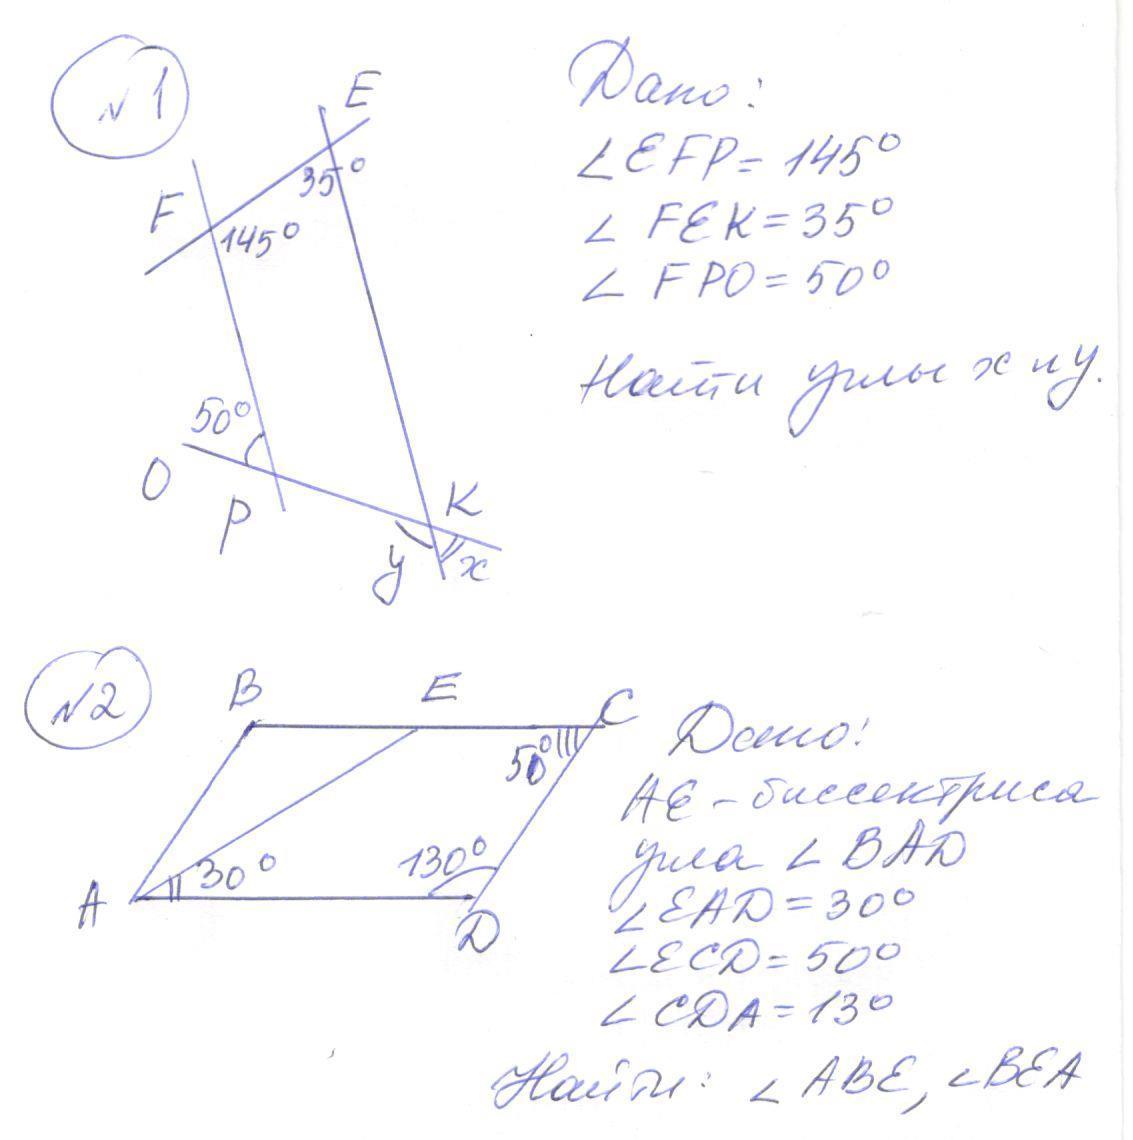 №1
E
F
35°
145°
50°
O
P
K
y
x
Дано:
∠EFP = 145°
∠FEK = 35°
∠FPO = 50°
Найти углы x и y.
№2
B
E
C
50°
30°
130°
A
D
Дано:
AE - биссектриса
угла ∠BAD
∠EAD = 30°
∠ECD = 50°
∠CDA = 13°
Найти: ∠ABE, ∠BEA